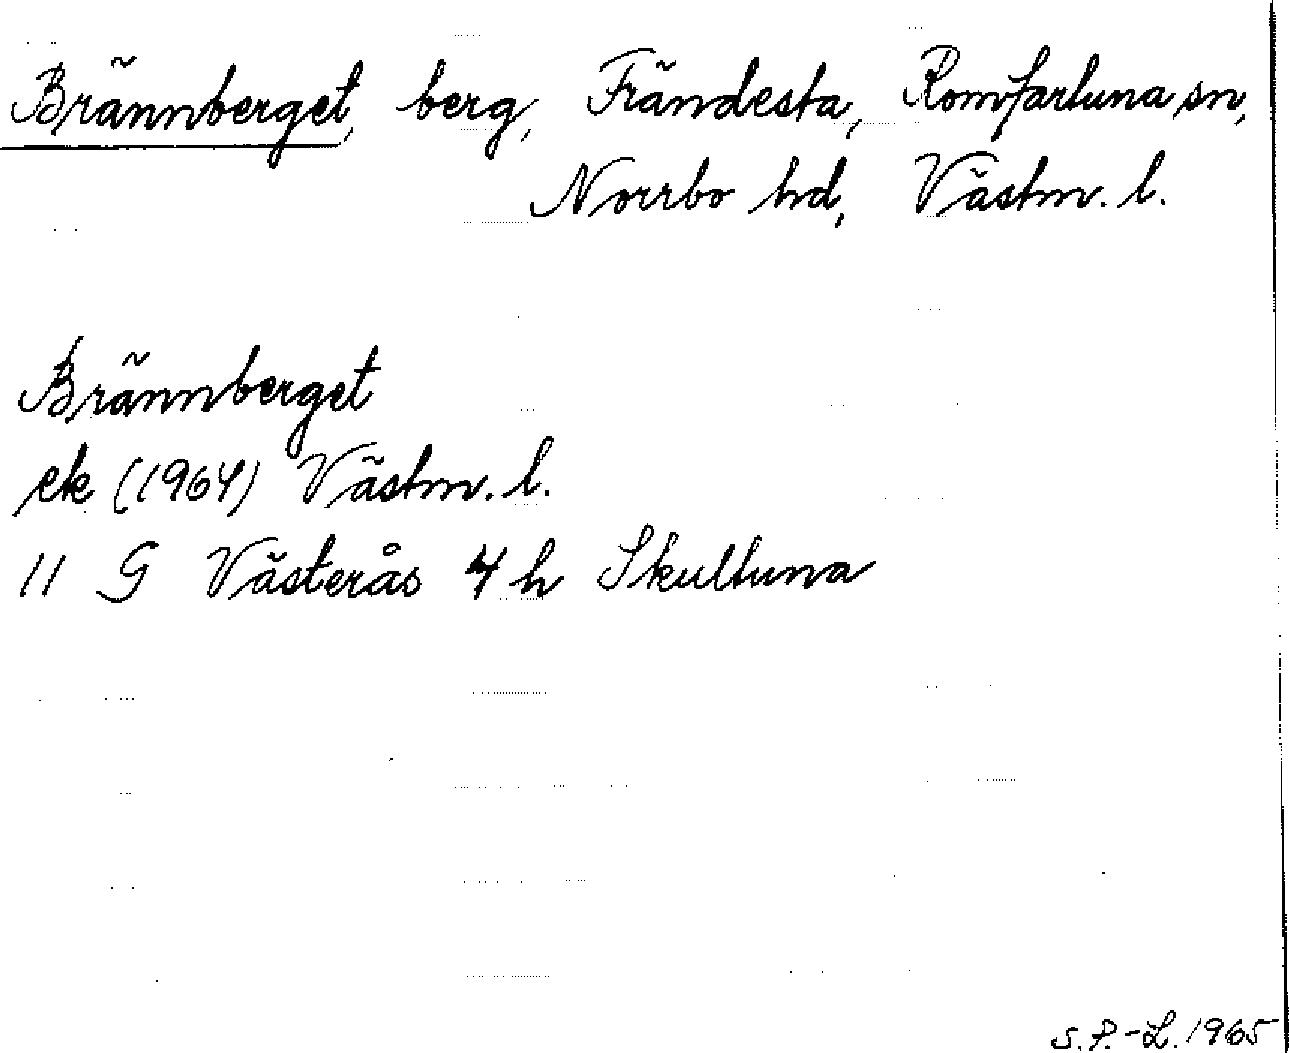 Brännberget, berg, Frändesta, Romfartuna sn,
Norrbo hd, Västm. l.
Brännberget
ek (1964) Västm. l.
11 G Västerås 4 h Skultuna
S. P.-L. 1965